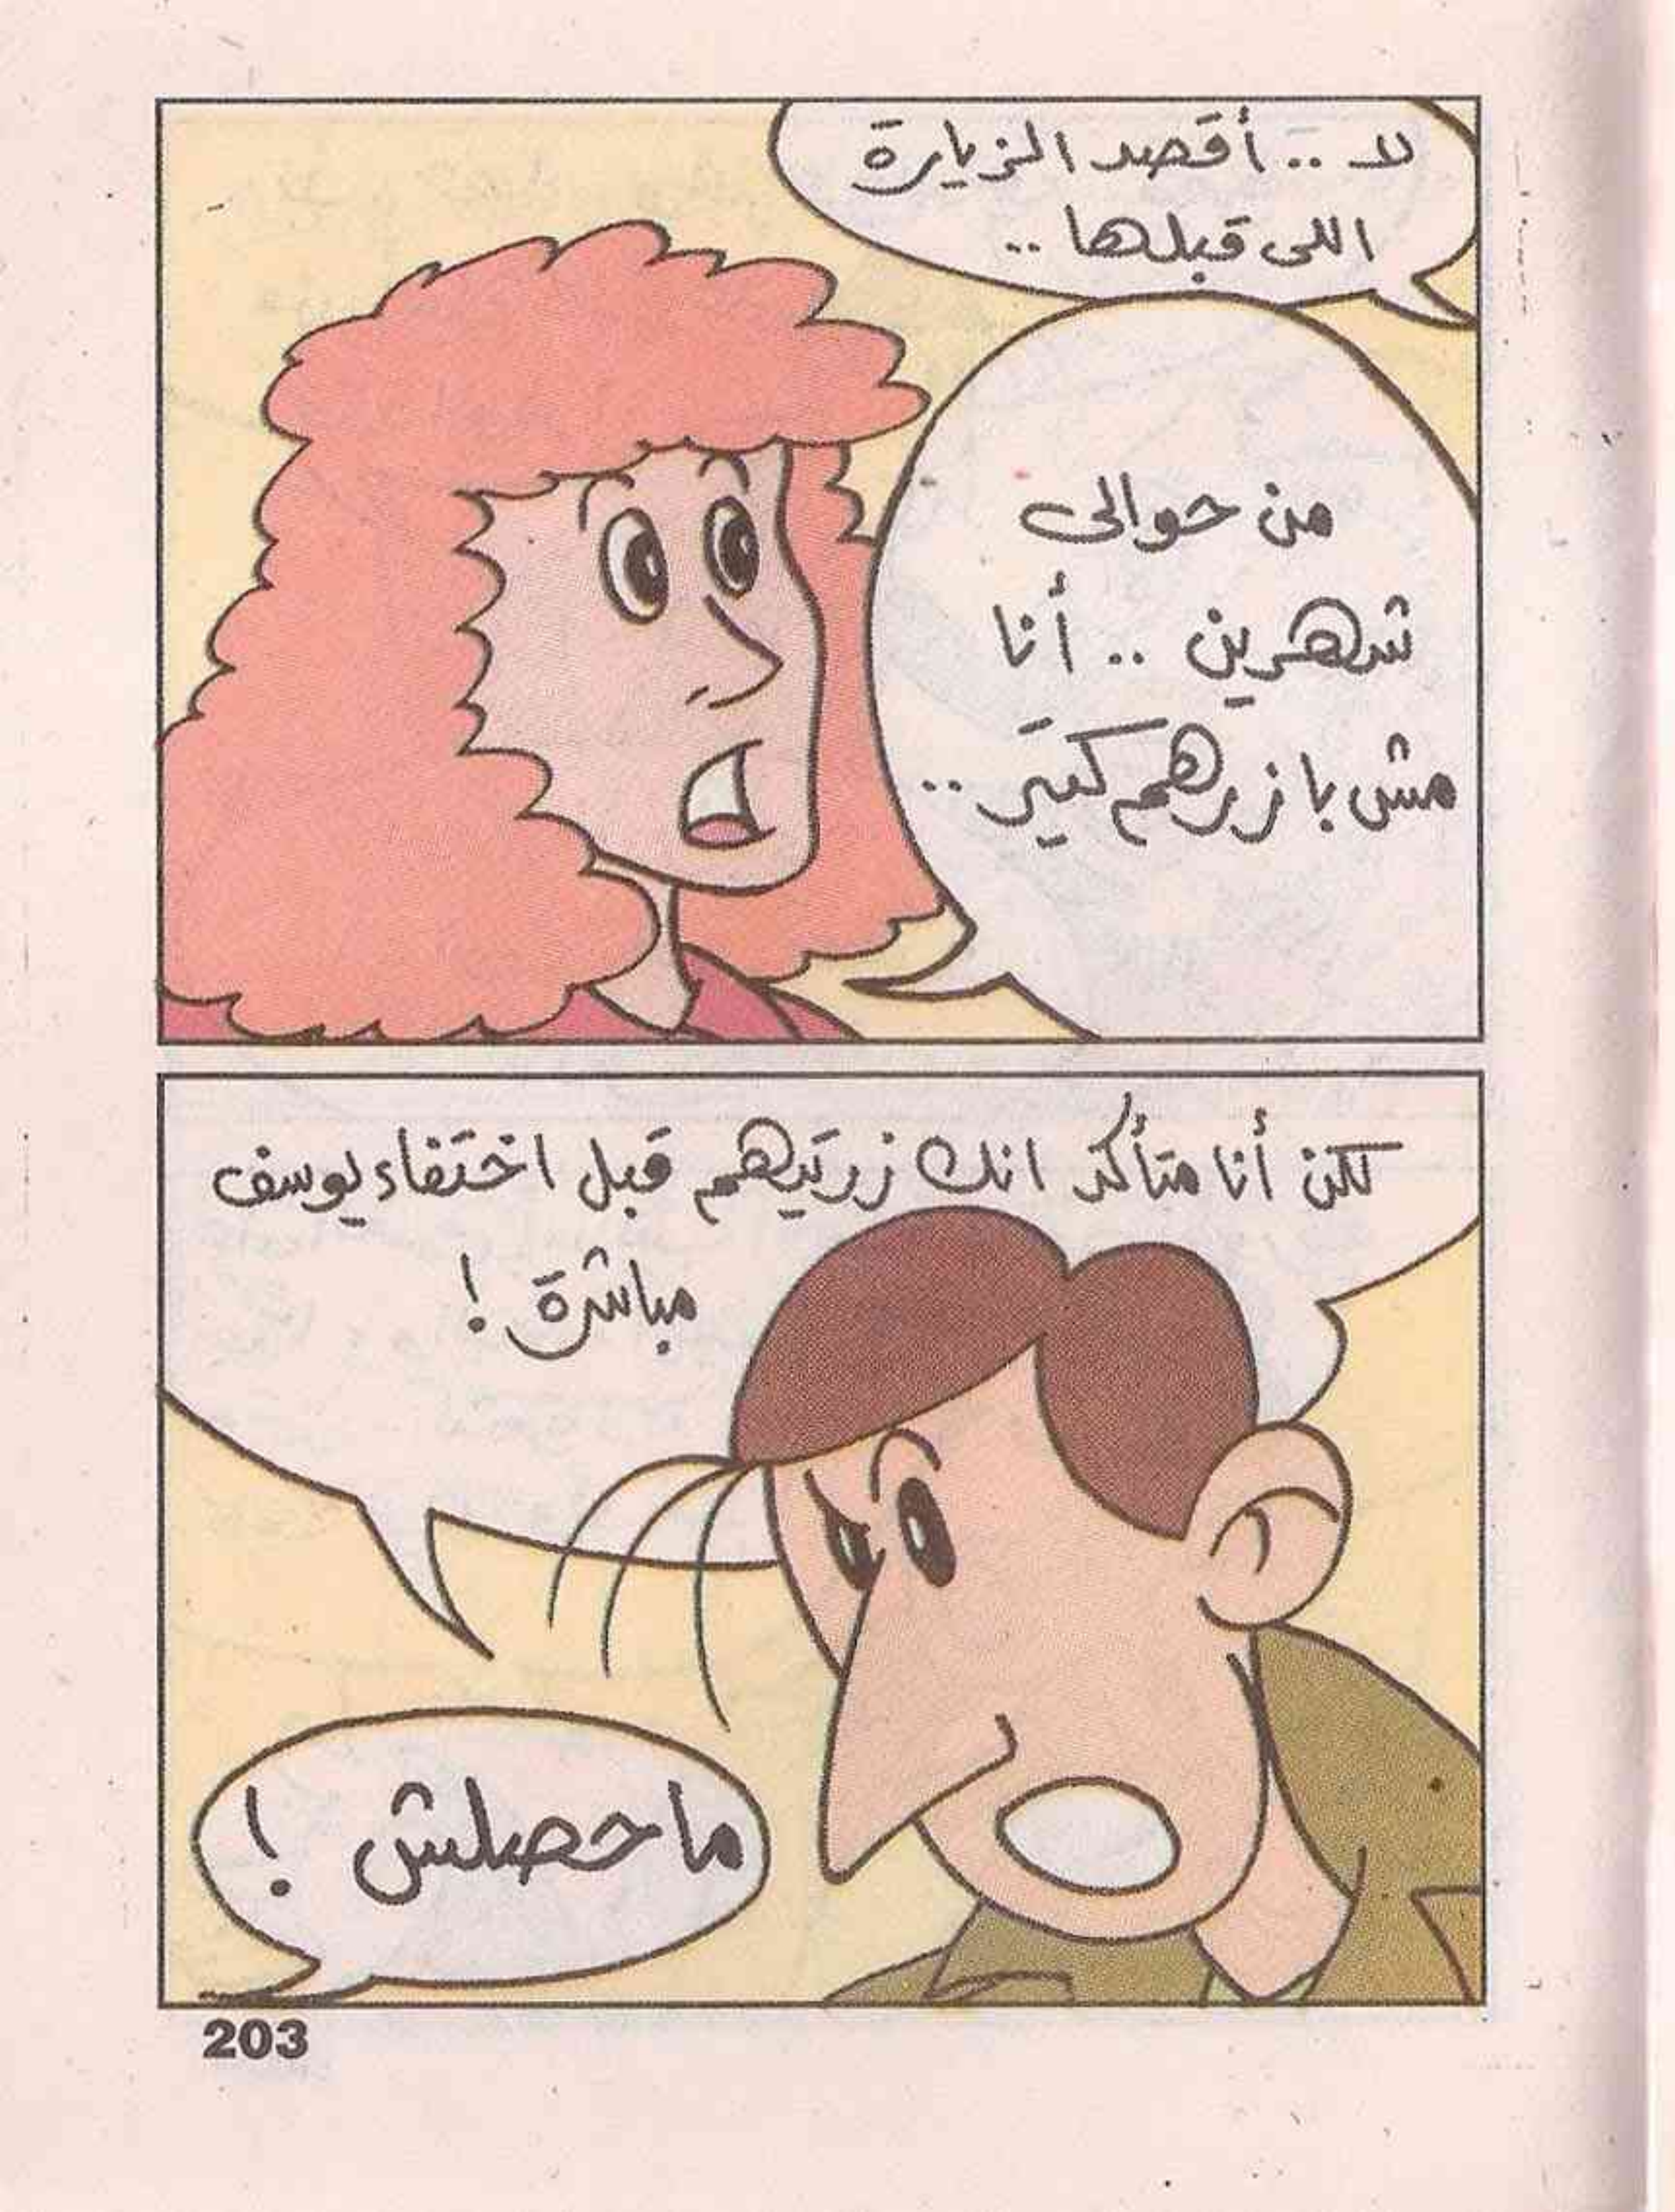 لا .. أقصد الزيارة
اللى قبلها ..
من حوالى
شهرين .. أنا
مش بازرهم كتير ..
لكن أنا متأكد انك زرتيهم قبل اختفاء يوسف
مباشرة !
ماحصلش !
203